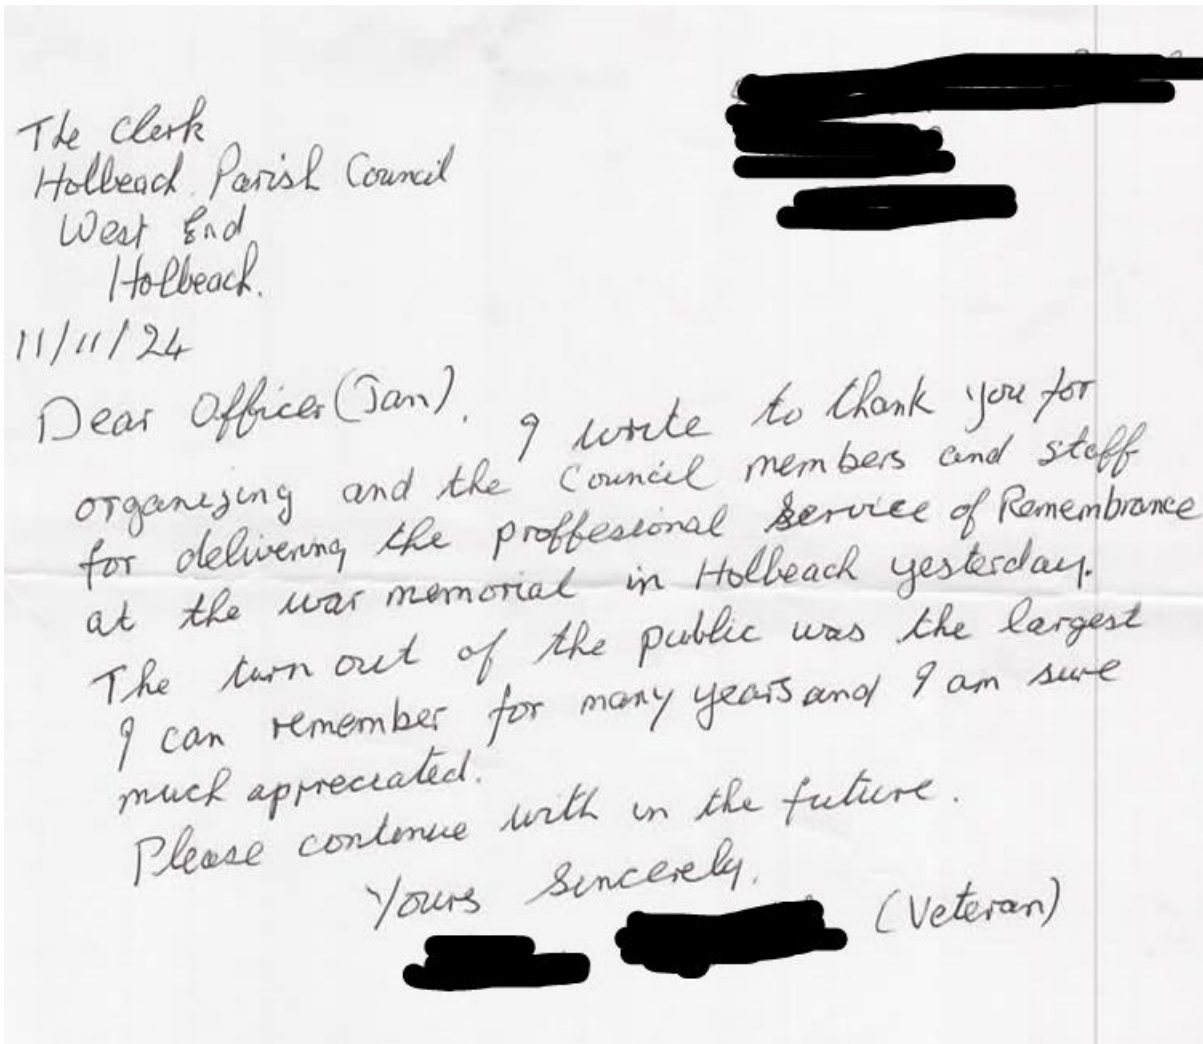 The Clerk
Holbeach Parish Council
West End
Holbeach.
11/11/24
Dear Officer (Jan).
I write to thank you for
organizing and the Council members and staff
for delivering the proffesional Service of Remembrance
at the war memorial in Holbeach yesterday.
The turn out of the public was the largest
I can remember for many years and I am sure
much appreciated.
Please continue with in the future.
Yours Sincerely,
(Veteran)